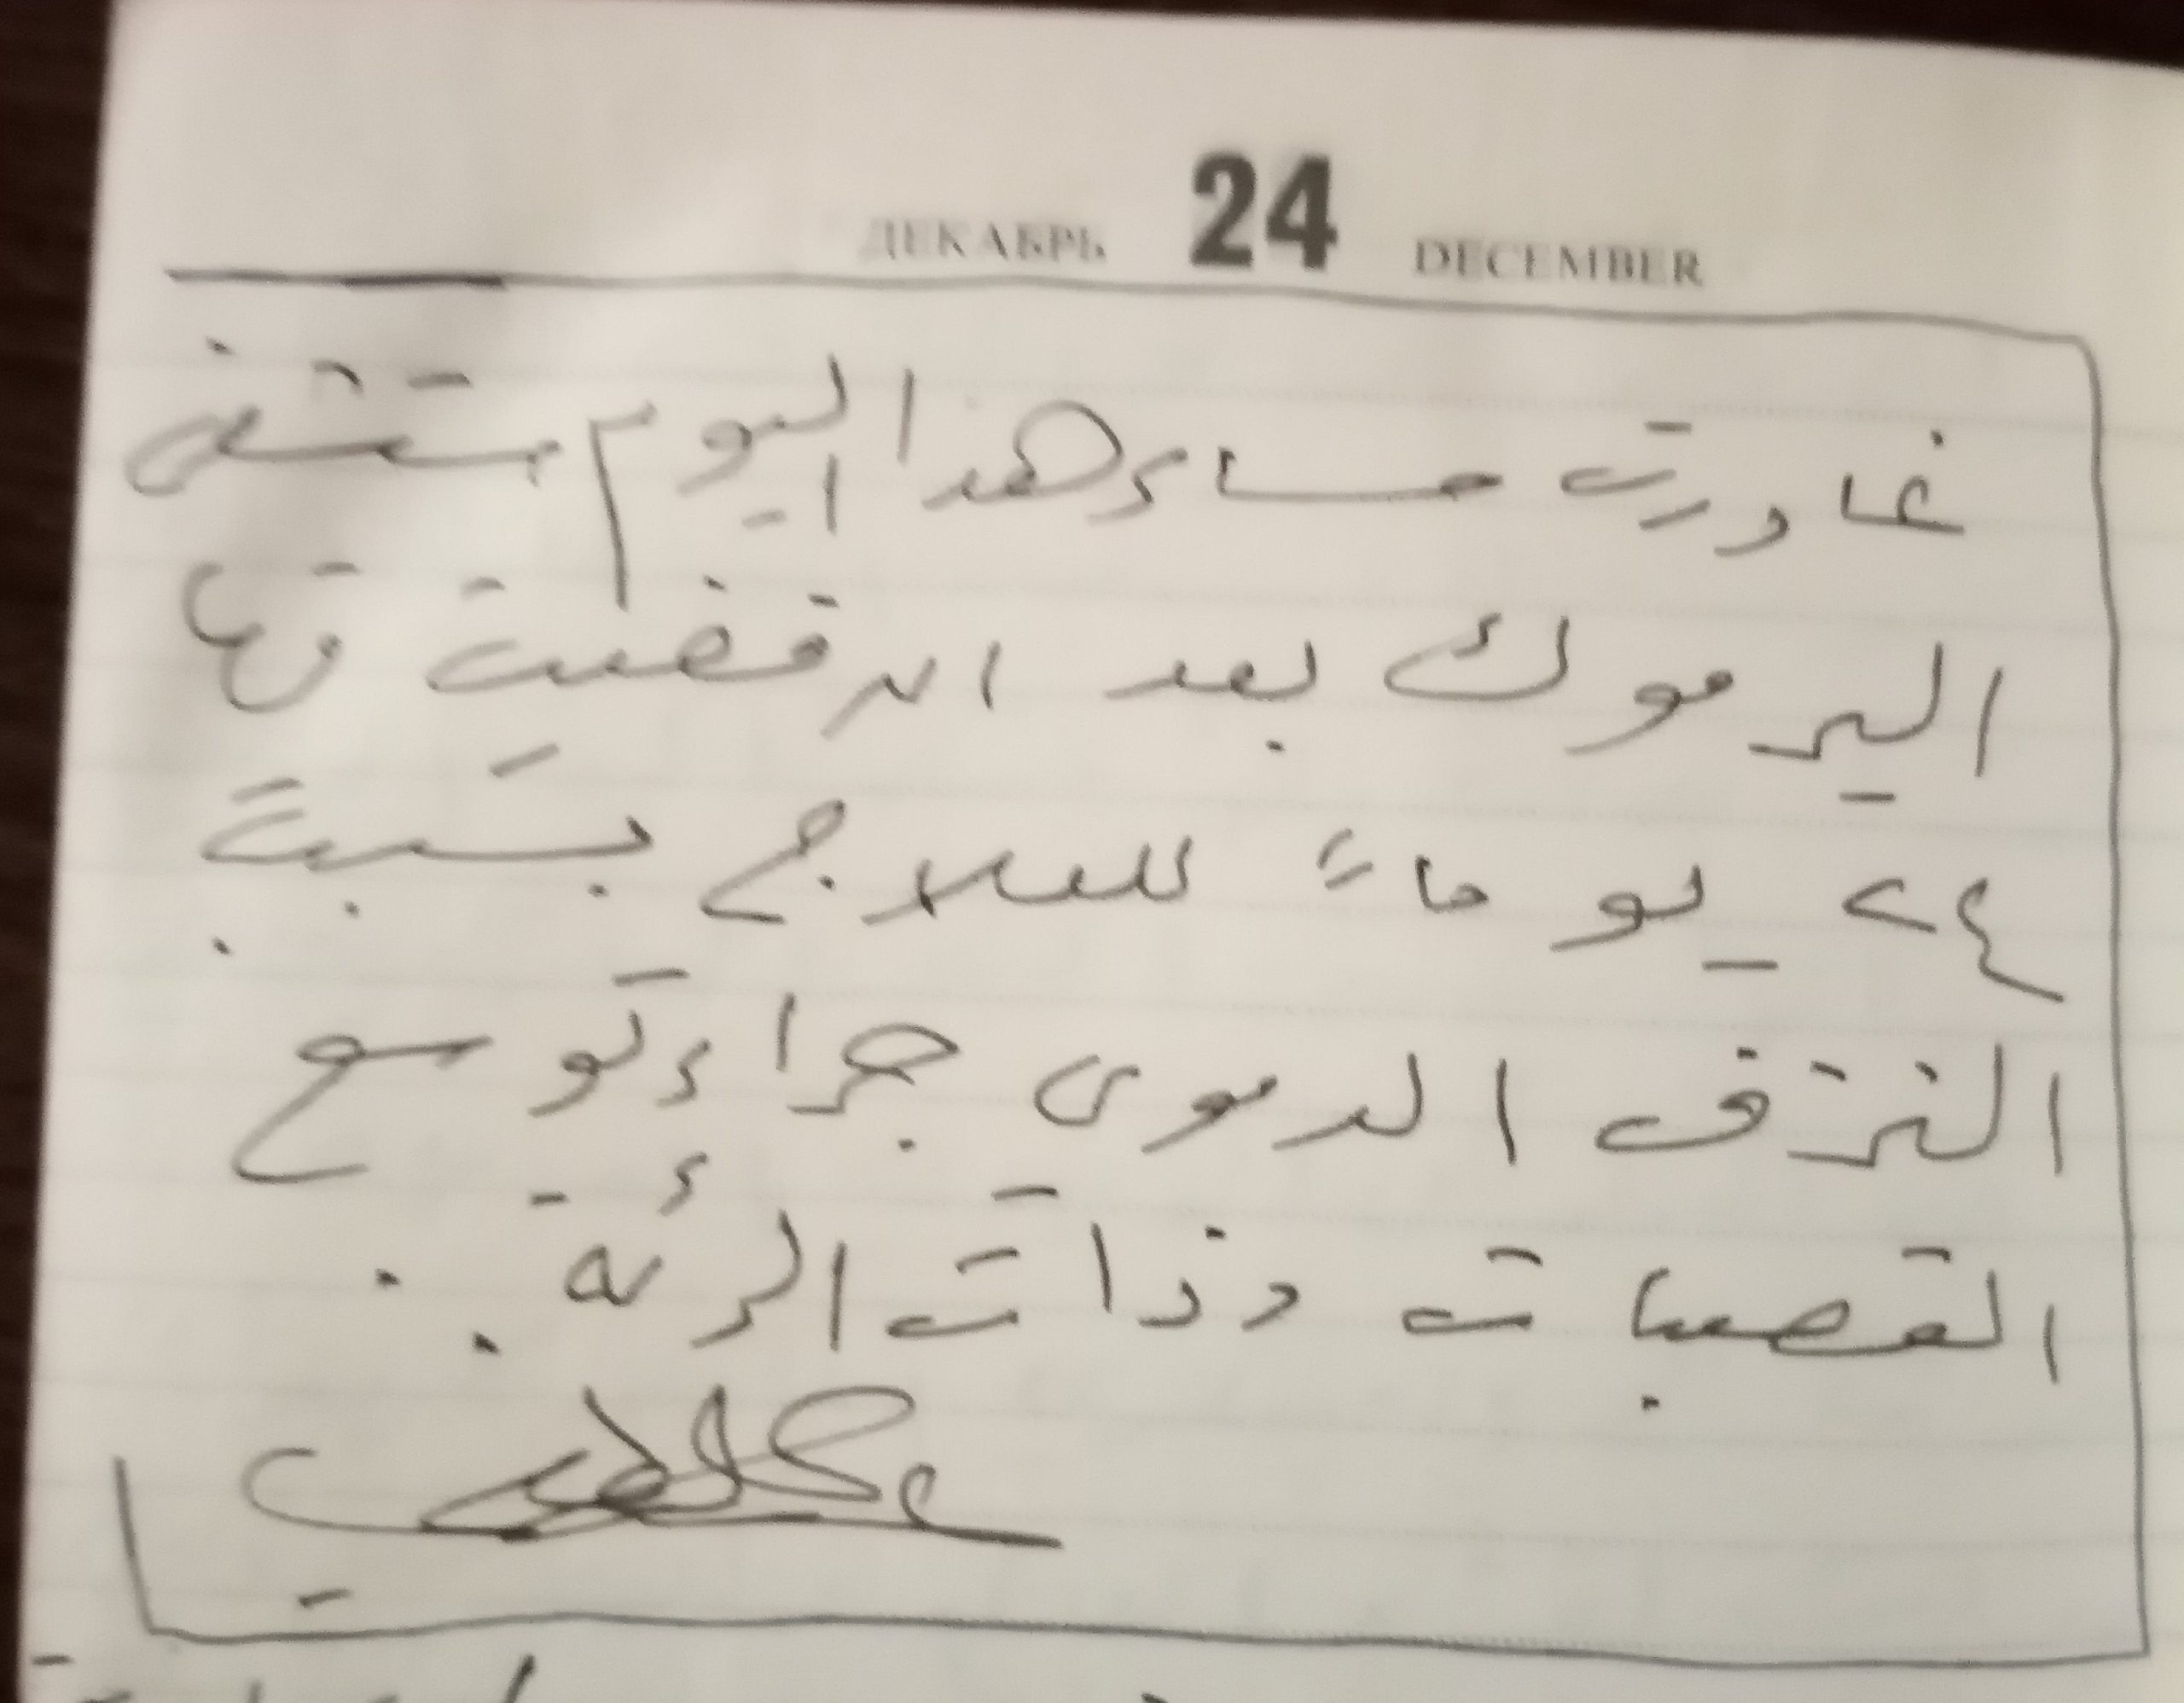 ДЕКАБРЬ 24 DECEMBER
غادرت مساء هذا اليوم مستشفى
اليرموك بعد ان قضيت فيها
٢٤ يوماً للعلاج بسبب
النزف الدموي جراء توسع
القصبات وذات الرئة .